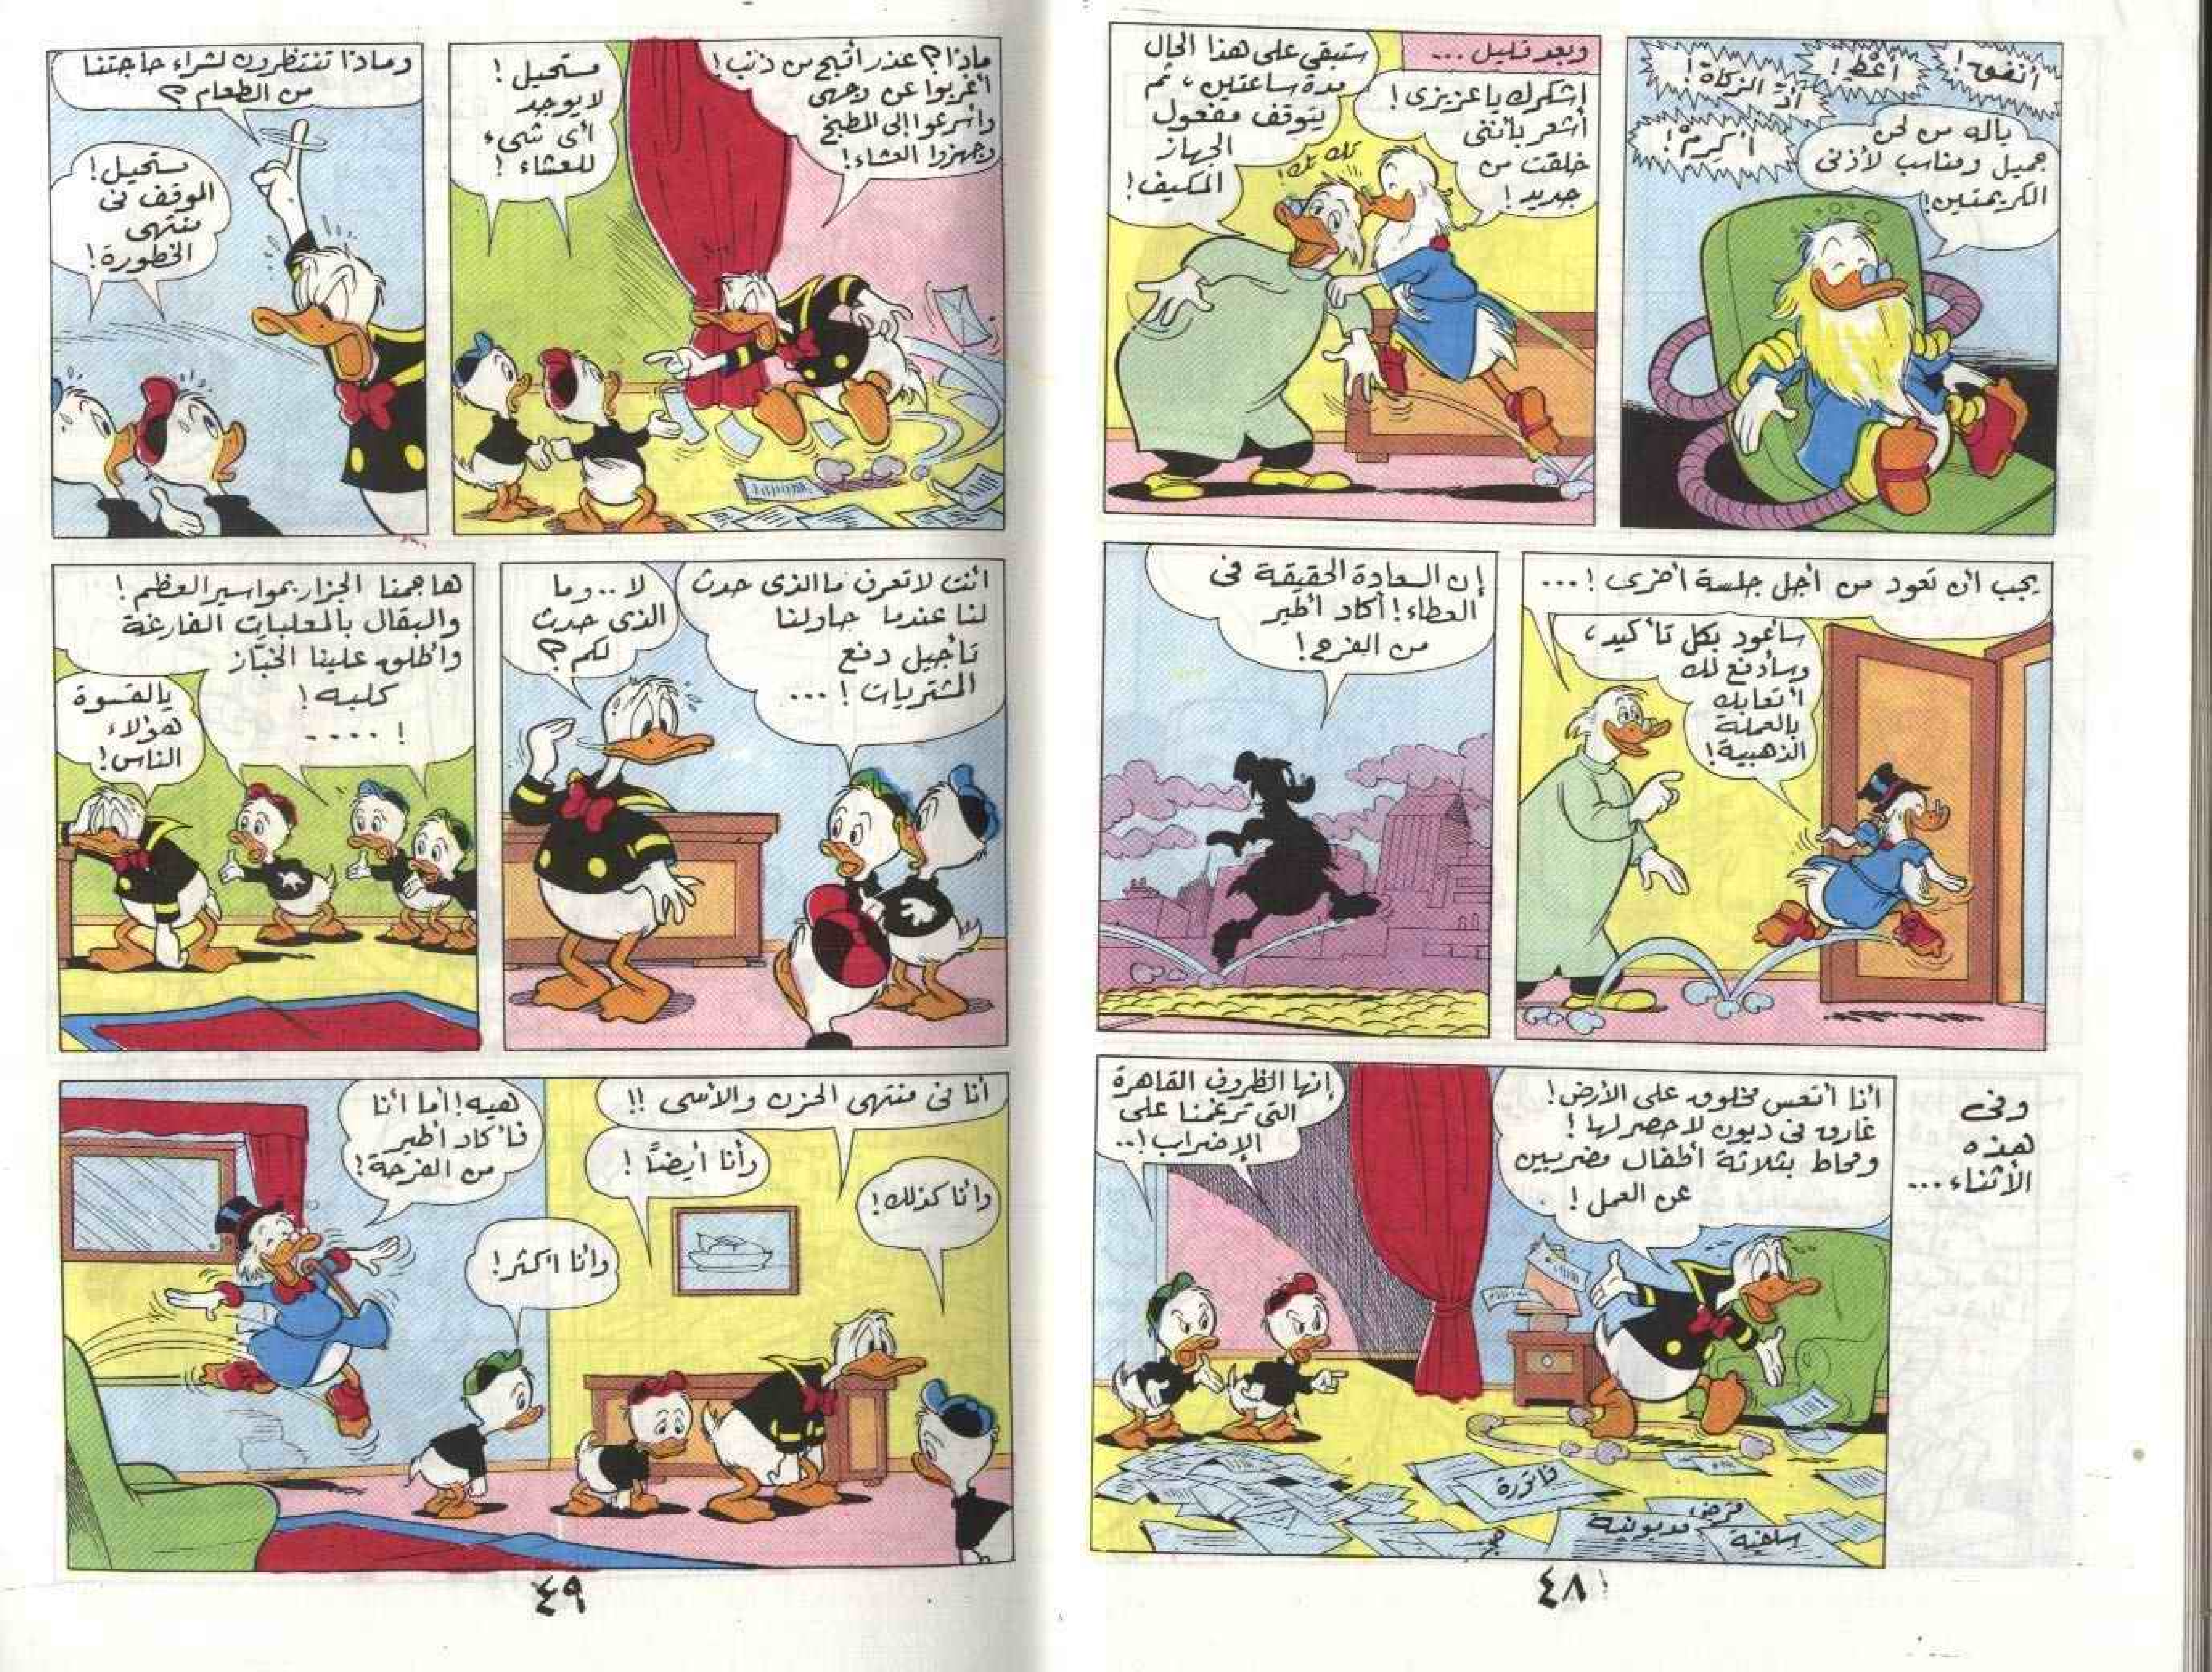 أنفق!
أعْطِ!
أدِّ الزكاة!
أكرِمْ!
ياله من لحن
جميل ومناسب لأذنى
الكريمتين!
وبعد قليل ...
إشكرك يا عزيزى!
أشعر بأننى
خلقت من
جديد!
ستبقى على هذا الحال
مدة ساعتين، ثم
يتوقف مفعول
الجهاز
المكيف!
تك تك!
يجب ان تعود من أجل جلسة أخرى! ...
سأعود بكل تأكيد،
وسأدفع لك
أتعابك
بالعملة
الذهبية!
إن السعادة الحقيقة فى
العطاء! أكاد أطير
من الفرح!
وفى
هذه
الأثناء ...
أنا أتعس مخلوق على الأرض!
غارق فى ديون لا حصر لها!
ومحاط بثلاثة أطفال مضربين
عن العمل!
إنها الظروف القاهرة
التى ترغمنا على
الإضراب!..
فاتورة
قرض
مديونية
سلفية
٤٨
ماذا؟ عذر أقبح من ذنب!
أغربوا عن وجهى
وأسرعوا إلى المطبخ
وجهزوا العشاء!
مستحيل!
لا يوجد
أى شىء
للعشاء!
وماذا تنتظرون لشراء حاجتنا
من الطعام؟
مستحيل!
الموقف فى
منتهى
الخطورة!
أنت لا تعرف ما الذى حدث
لنا عندما حاولنا
تأجيل دفع
المشتريات! ...
لا .. وما
الذى حدث
لكم؟
هاجمنا الجزار بمواسير العظم!
والبقال بالمعلبات الفارغة
وأطلق علينا الخبّاز
كلبه!
! ....
يالقسوة
هؤلاء
الناس!
أنا فى منتهى الحزن والأسى !!
وأنا كذلك!
وأنا أيضاً!
وأنا أكثر!
هيه! أما أنا
فأكاد أطير
من الفرحة!
٤٩